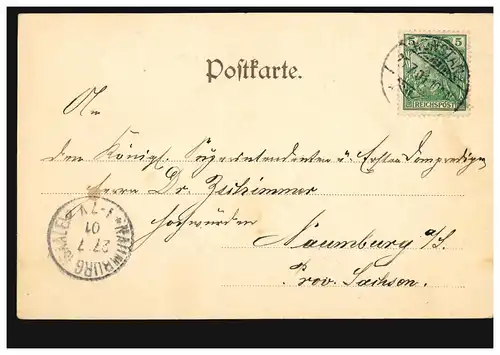 Postkarte.
5 5
REICHSPOST
An
den Königl. Superintendenten u. Ersten Domprediger
Herrn Dr. Zschimmer
Hochwürden
Naumburg a/S.
Prov. Sachsen.
NAUMBURG (SAALE)
27.7
01
1-7V